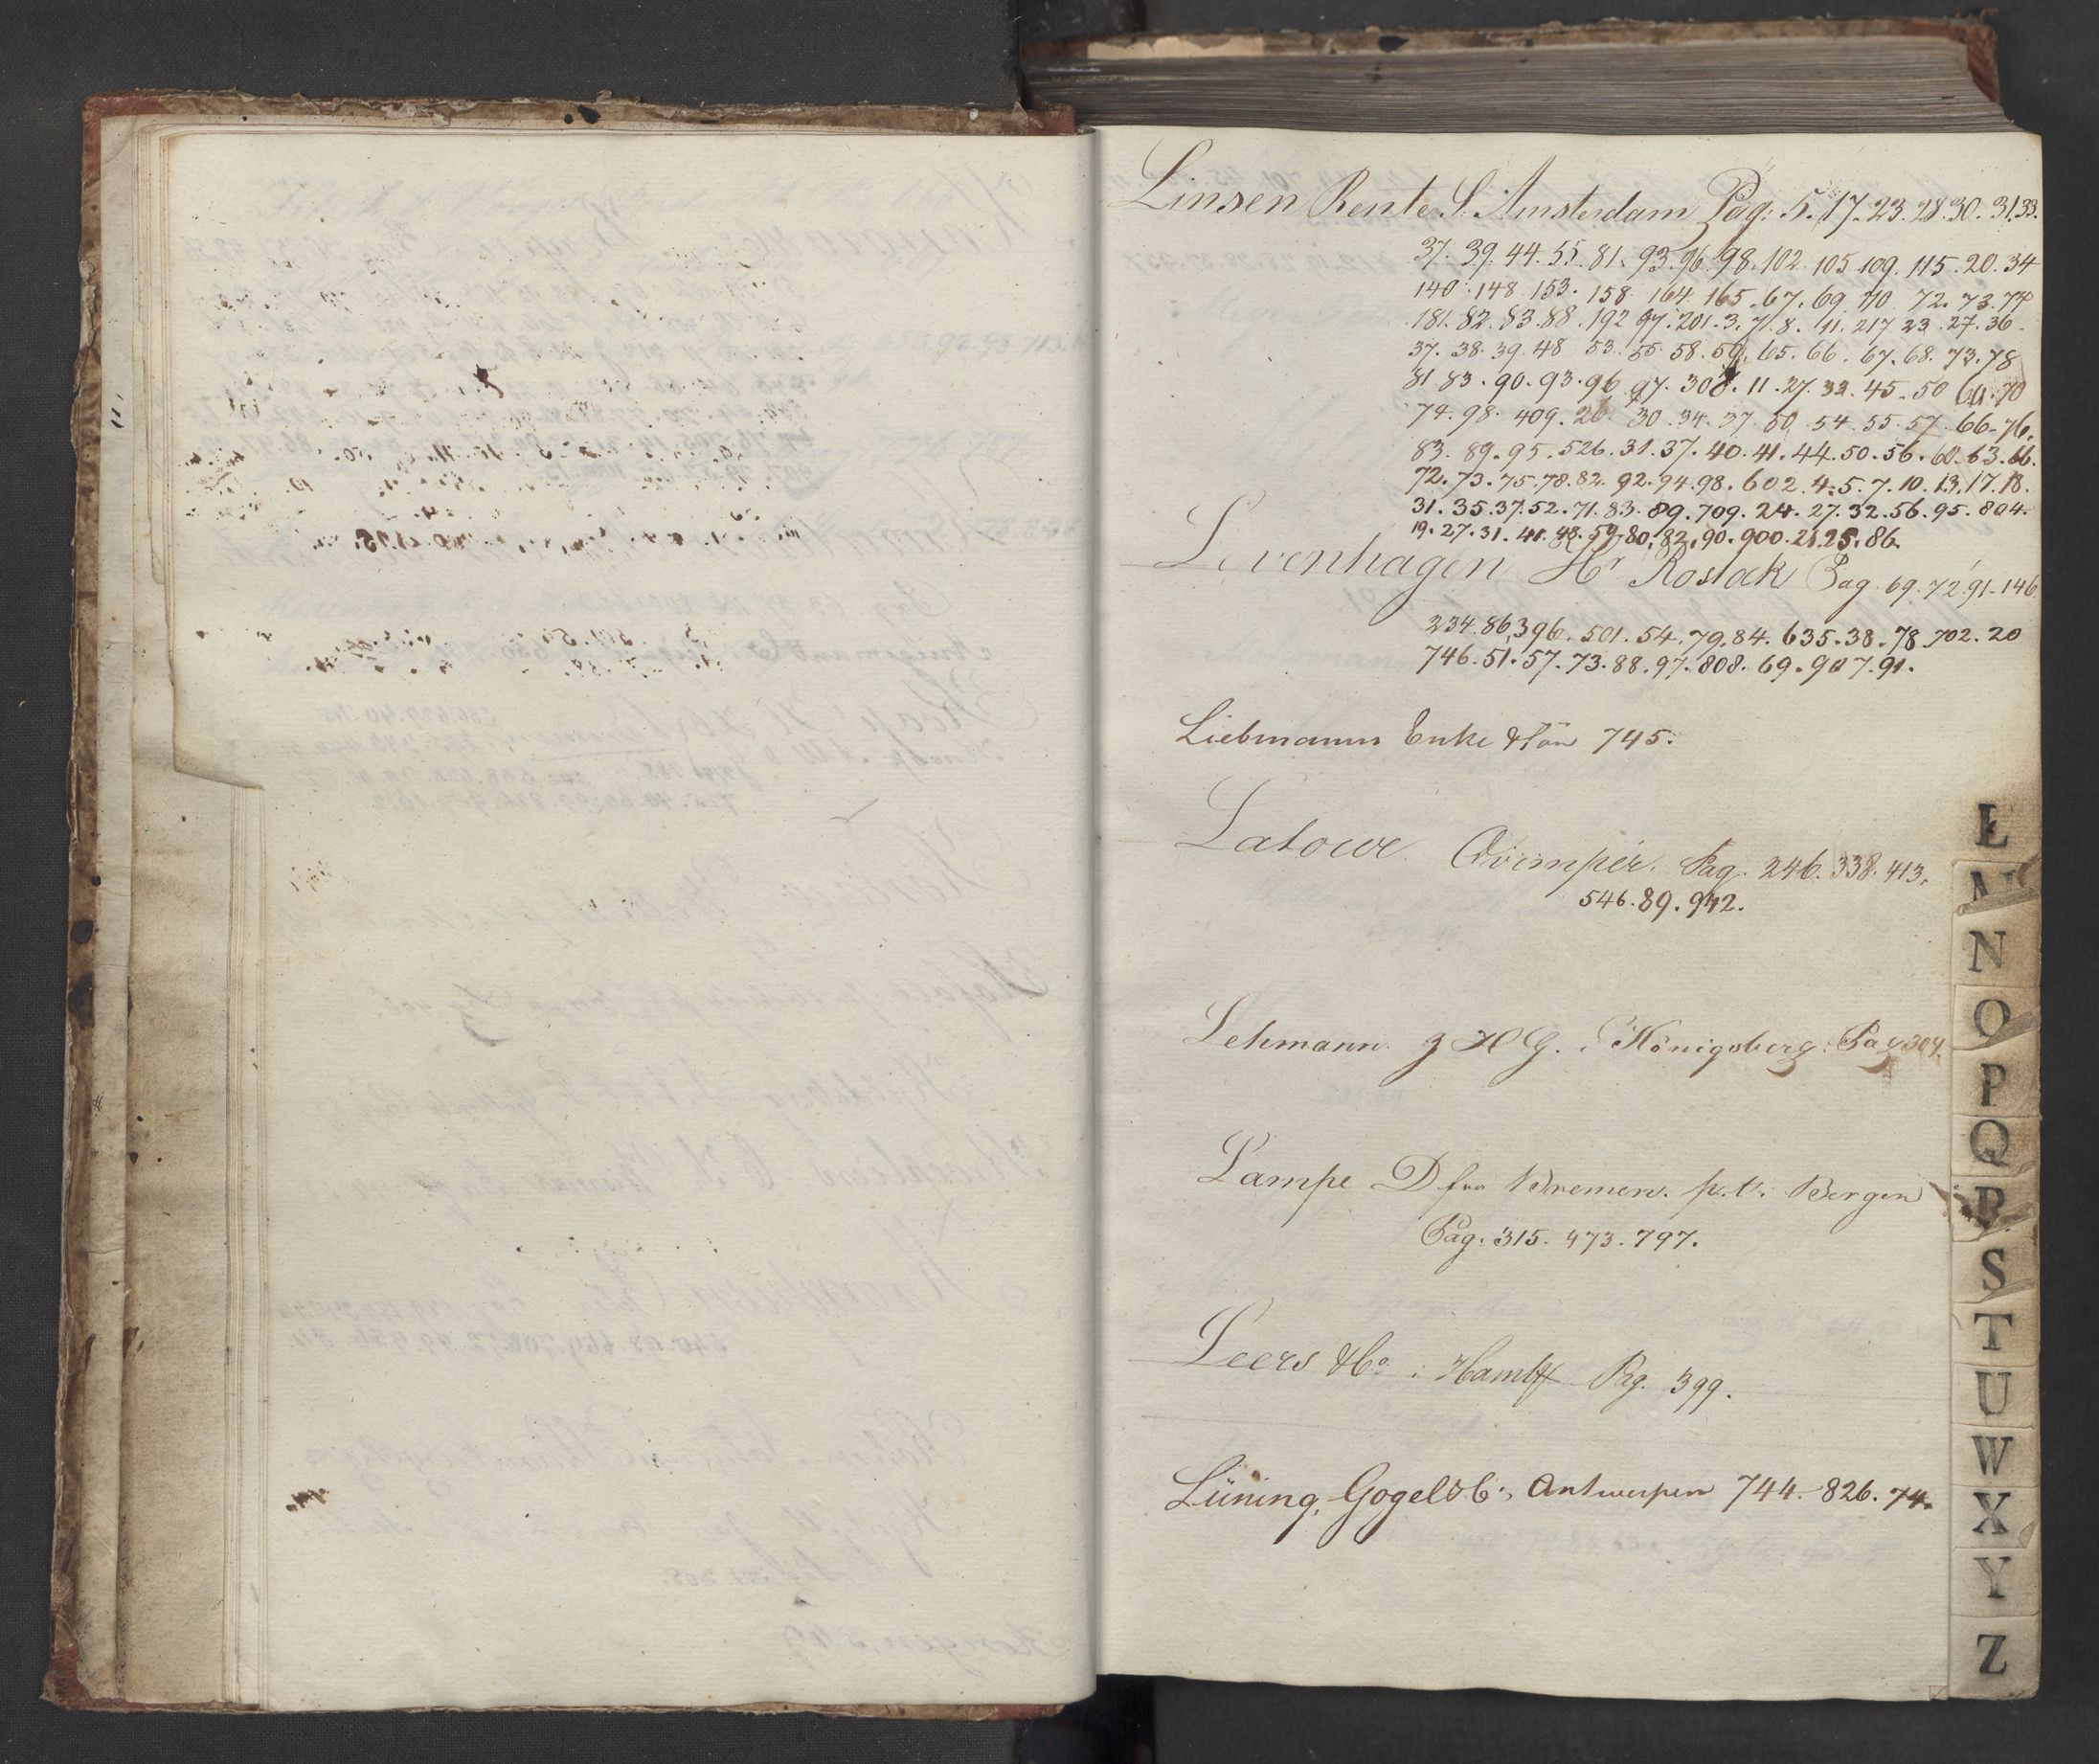 Linsen Rente & Amsterdam Pag: 5. 17. 23. 28. 30. 31. 33.
37. 39. 44. 55. 81. 93. 96. 98. 102. 105. 109. 115. 20. 34
140. 148. 153. 158. 164. 165. 67. 69. 70. 72. 73. 77
181. 82. 83. 88. 192. 97. 201. 3. 7. 8. 11. 217. 23. 27. 36.
37. 38. 39. 48. 53. 55. 58. 59. 65. 66. 67. 68. 73. 78
81. 83. 90. 93. 96. 97. 308. 11. 27. 32. 45. 50. 60. 70
74. 98. 409. 26. 30. 34. 37. 50. 54. 55. 57. 66. 76.
83. 89. 95. 526. 31. 37. 40. 41. 44. 50. 56. 60. 63. 66.
72. 73. 75. 78. 82. 92. 94. 98. 602. 4. 5. 7. 10. 13. 17. 18.
31. 35. 37. 52. 71. 83. 89. 709. 24. 27. 32. 56. 95. 804.
19. 27. 31. 41. 48. 59. 80. 82. 90. 900. 21. 25. 86.
Levenhagen Hr Rostock Pag. 69. 72. 91. 146
234. 86. 396. 501. 54. 79. 84. 635. 38. 78. 702. 20
746. 51. 57. 73. 88. 97. 808. 69. 907. 91.
Liebmanns Enke & Sön 745.
Latowe. Qvimper. Pag. 246. 338. 413.
546. 89. 942.
Lehmann J H G. i Königsberg. Pag 304.
Lampe D fra Bremen. p.t. Bergen
Pag. 315. 473. 797.
Leers & Co i Hambg Pag. 399.
Lüning, Gogel & C:, Antwerpen 744. 826. 74.
L
M
N
O
P
Q
R
S
T
U
W
X
Y
Z